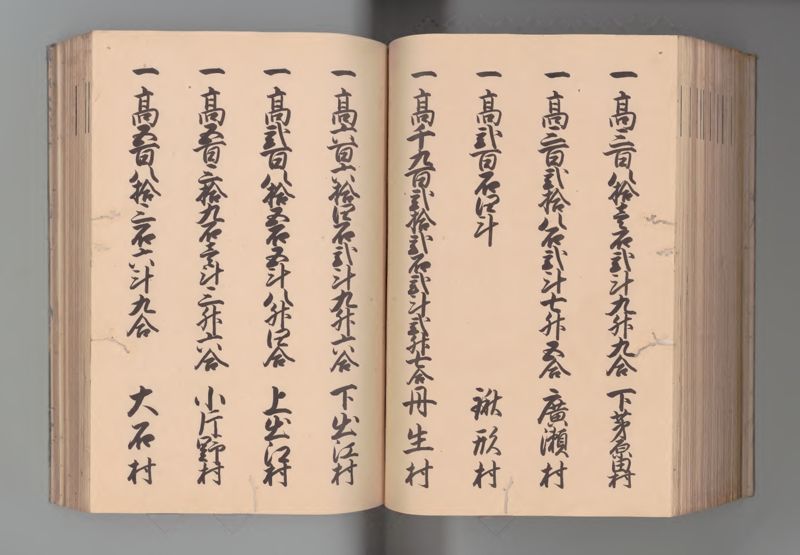 一高三百八拾壱石弐斗九升九合 下茅原田村
一高三百弐拾八石弐斗七升五合 廣瀬村
一高弐百石四斗 鍬形村
一高千九百弐拾弐石弐斗弐升七合 丹生村
一高六百六拾四石弐斗九升六合 下出江村
一高弐百八拾五石五斗八升四合 上出江村
一高五百三拾九石壱斗三升六合 小片野村
一高五百八拾三石六斗九合 大石村